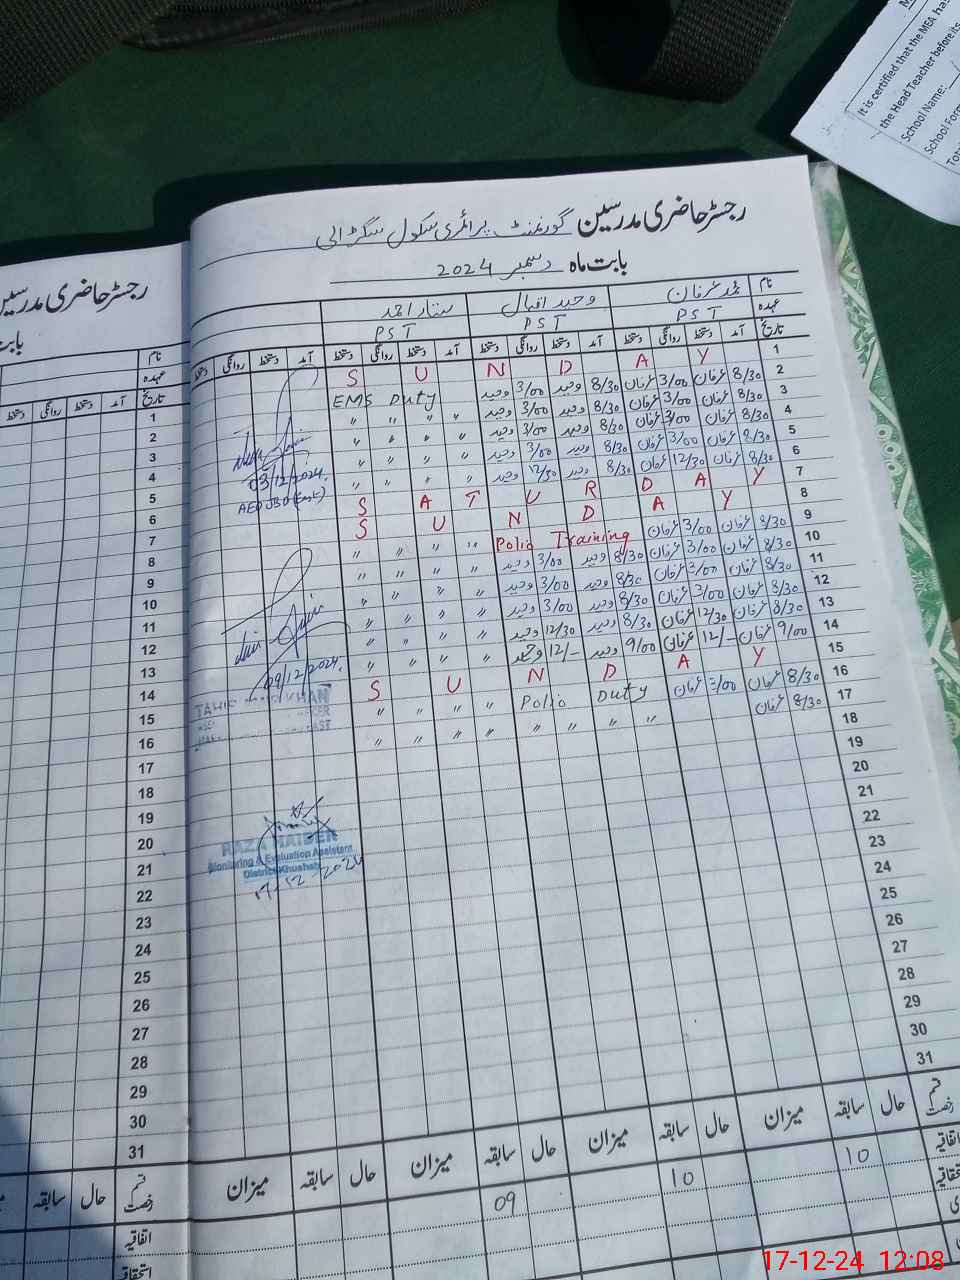 It is certified that the MEA has
the Head Teacher before its
School Name:
School Form
Tota
رجسٹر حاضری مدرسین گورنمنٹ پرائمری سکول سگرالی
بابت ماہ دسمبر 2024
نام محمد عرفان وحید اقبال ستار احمد
عہدہ PST PST PST
تاریخ آمد دستخط روانگی دستخط آمد دستخط روانگی دستخط آمد دستخط روانگی دستخط آمد دستخط روانگی دستخط
1 S U N D A Y
2 8/30 عرفان 3/00 عرفان 8/30 وحید 3/00 وحید EMS Duty
3 8/30 عرفان 3/00 عرفان 8/30 وحید 3/00 وحید " " " "
4 8/30 عرفان 3/00 عرفان 8/30 وحید 3/00 وحید " " " "
5 8/30 عرفان 3/00 عرفان 8/30 وحید 3/00 وحید " " " "
6 8/30 عرفان 12/30 عرفان 8/30 وحید 12/30 وحید " " " "
7 S A T U R D A Y
8 S U N D A Y
9 8/30 عرفان 3/00 عرفان Polio Training " " " "
10 8/30 عرفان 3/00 عرفان 8/30 وحید 3/00 وحید " " " "
11 8/30 عرفان 3/00 عرفان 8/30 وحید 3/00 وحید " " " "
12 8/30 عرفان 3/00 عرفان 8/30 وحید 3/00 وحید " " " "
13 8/30 عرفان 12/30 عرفان 8/30 وحید 12/30 وحید " " " "
14 9/00 عرفان 12/- عرفان 9/00 وحید 12/- وحید " " " "
15 S U N D A Y
16 8/30 عرفان 3/00 عرفان Polio Duty " " " "
17 8/30 عرفان " " " " " " " "
18
19
20
21
22
23
24
25
26
27
28
29
30
31
03/12/2024.
AEO JBD (East)
09/12/2024.
RAZA HAIDER
Monitoring & Evaluation Assistant
District Khushab
17-12-2024
قسم رخصت حال سابقہ میزان حال سابقہ میزان حال سابقہ میزان حال سابقہ میزان
اتفاقیہ 10 10 09
استحقاقیہ
رجسٹر حاضری مدرسین
بابت
نام
عہدہ
تاریخ آمد دستخط روانگی دستخط
1
2
3
4
5
6
7
8
9
10
11
12
13
14
15
16
17
18
19
20
21
22
23
24
25
26
27
28
29
30
31
قسم رخصت حال سابقہ
اتفاقیہ
استحقاقیہ
17-12-24 12:08